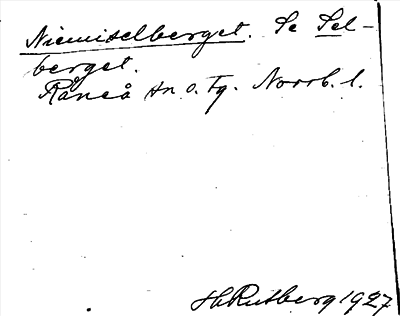 Niemiselberget. Se Sel-
berget.
Råneå sn o. tg. Norrb. l.
H Rutberg 1927